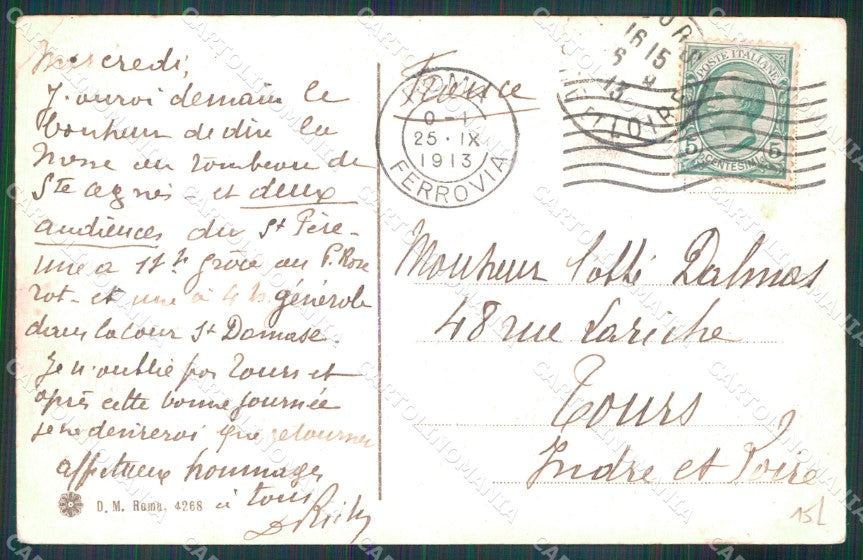 Mercredi,
J'aurai demain le
bonheur de dire la
messe au tombeau de
Ste agnès et deux
audiences du St Père -
une à 11h grâce au P. Rose
rot - et une à 4 h. générale
dans la cour St Damase.
Je n'oublie pas Tours et
après cette bonne journée
je ne desirerai que retourner
affectueux hommages
à tous
D. M. Roma. 4268
France
ROMA
0-1
25·IX
1913
FERROVIA
TOURS
16 15
13
INDRE ET LOIRE
POSTE ITALIANE
5 CENTESIMI 5
Monsieur l'abbé Dalmas
48 rue Lariche
Tours
Indre et Loire
15L
CARTOLINOMANIA